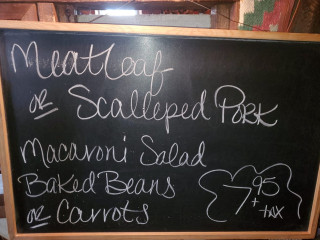 Meatloaf
or Scalloped Pork
Macaroni Salad
Baked Beans
or Carrots
7.95
+ tax